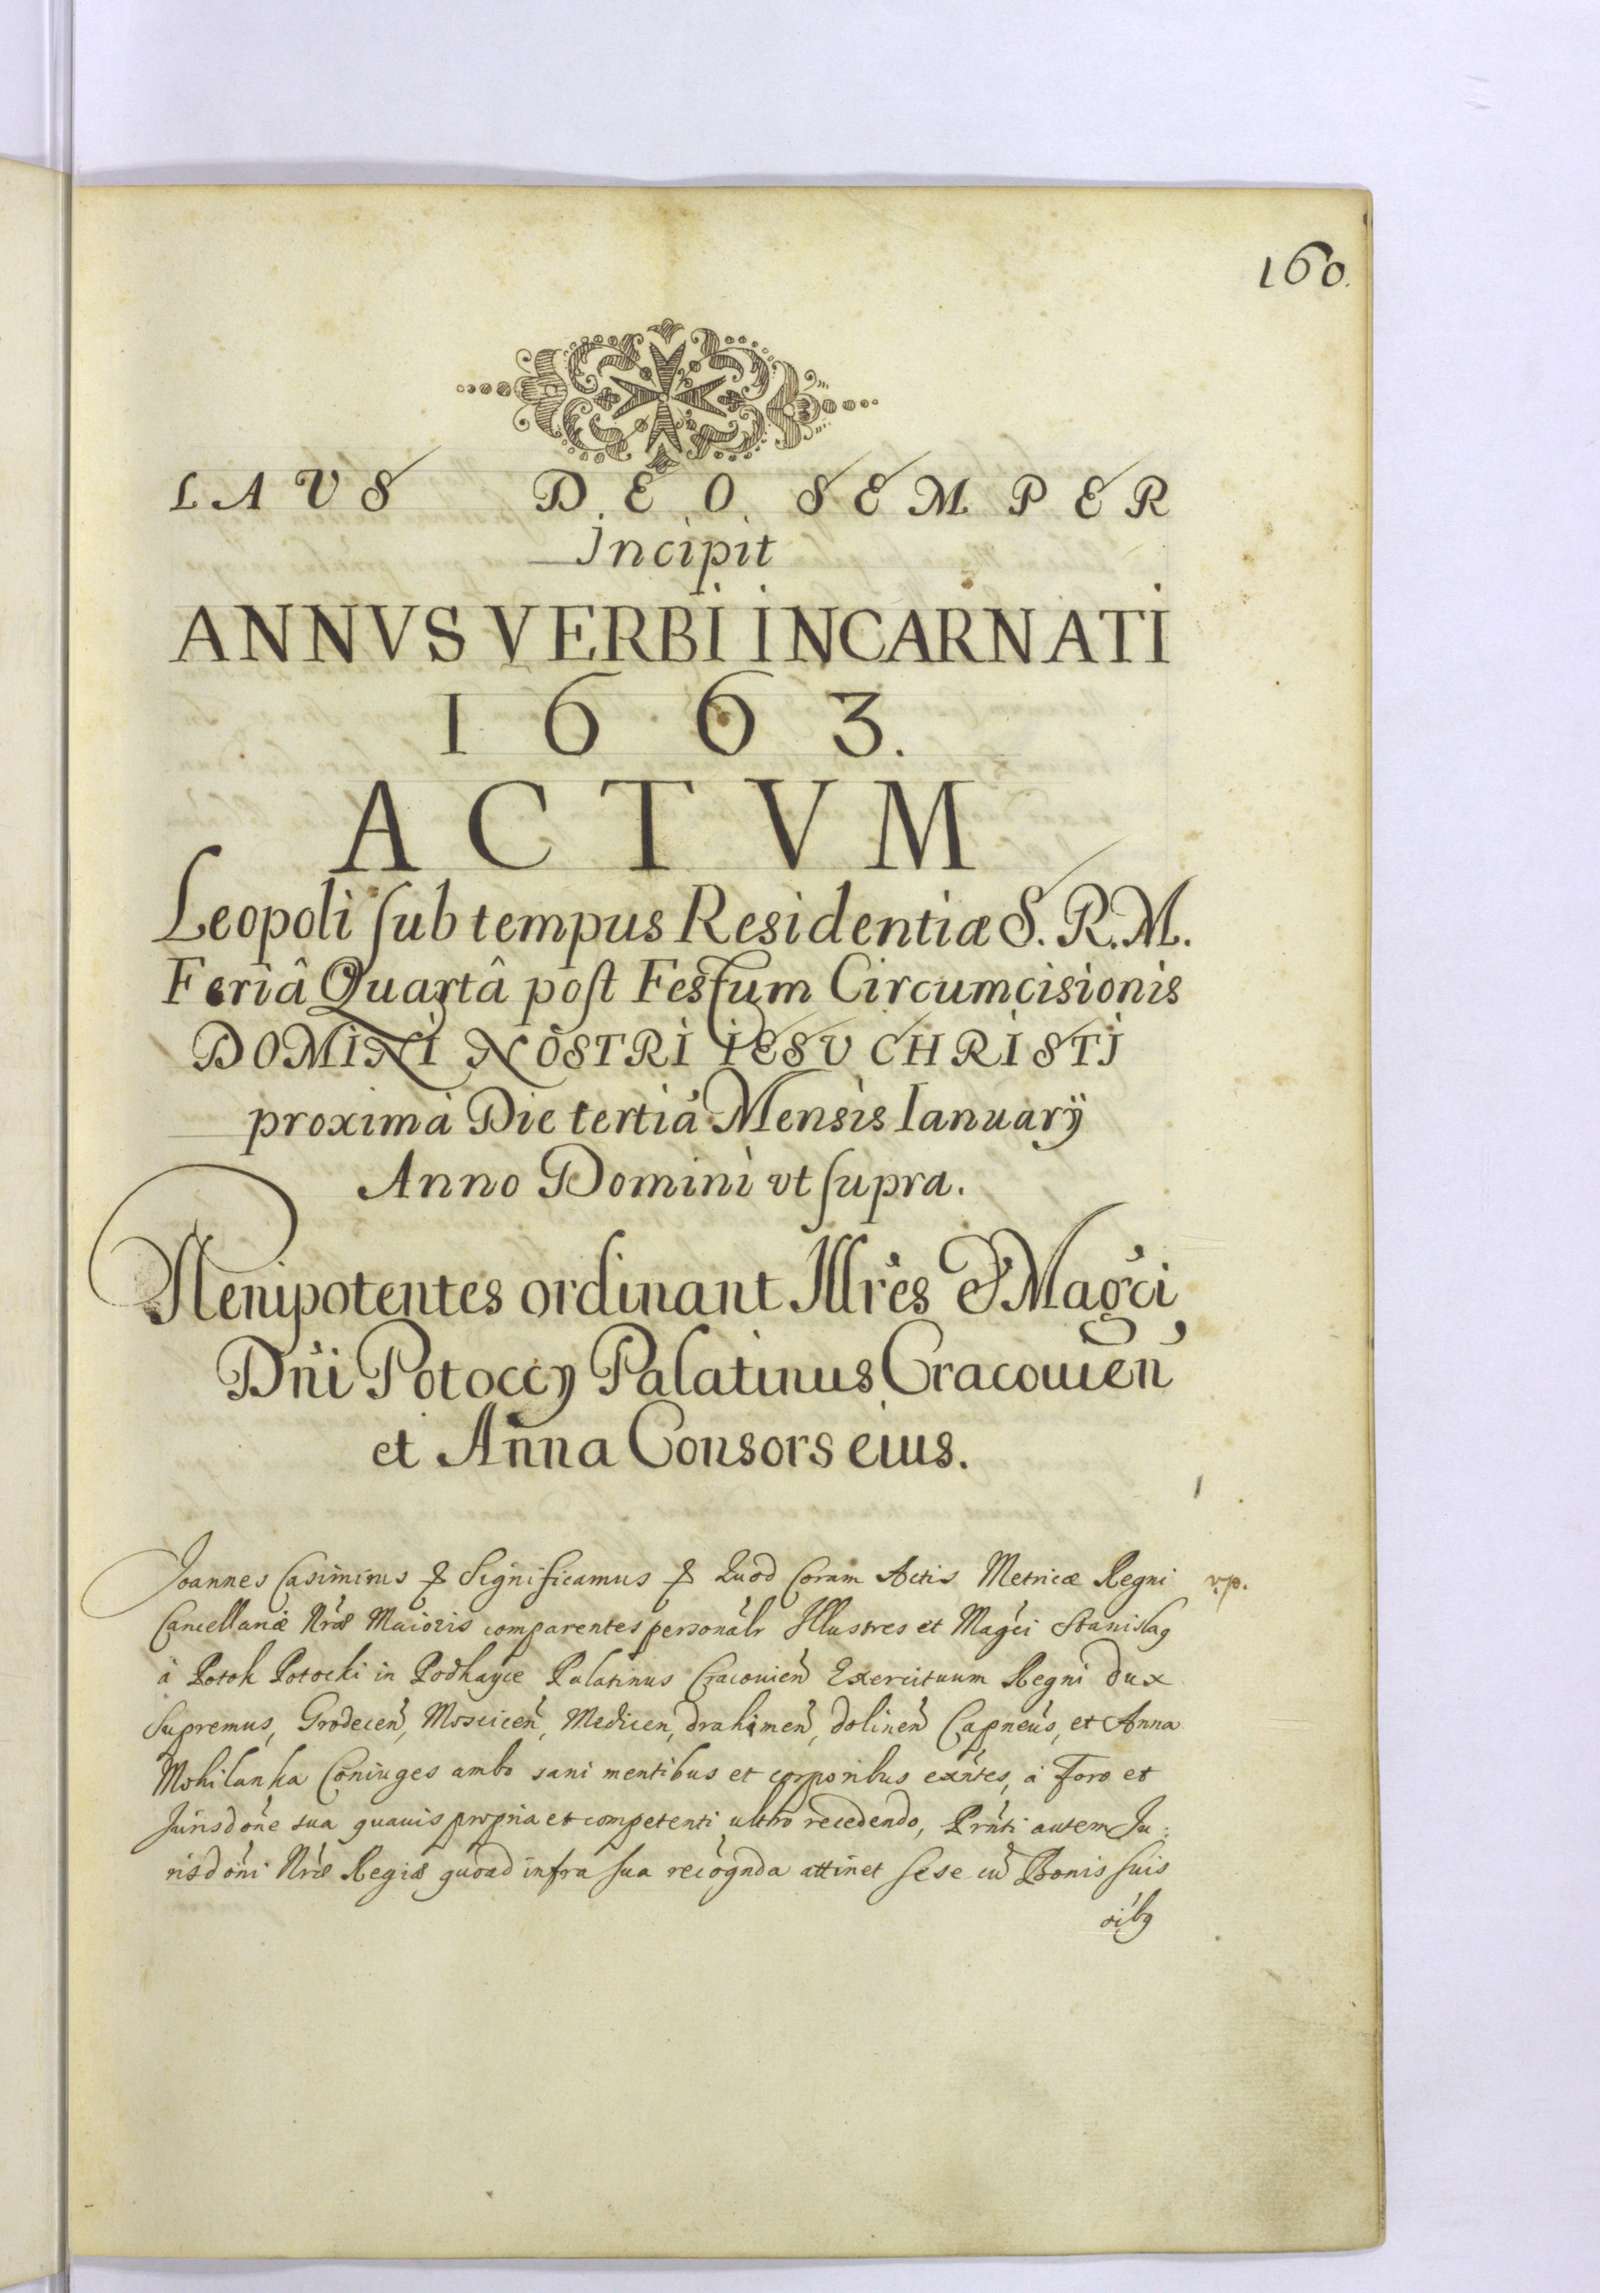 160.
LAVS DEO SEMPER
Incipit
ANNVS VERBI INCARNATI
1663.
ACTVM
Leopoli sub tempus Residentiæ S. R. M.
Feriâ Quartâ post Festum Circumcisionis
DOMINI NOSTRI IESV CHRISTI
proximá Die tertiá Mensis Ianuarÿ
Anno Domini vt supra.
Plenipotentes ordinant Illres & Magci
Dni Potoccy Palatinus Cracouien
et Anna Consors eius.
1
Joannes Casimirus & Significamus & Quod Coram Actis Metricæ Regni
v.p.
Cancellariæ Nræ Maioris comparentes personalr Illustres et Magci Stanislaq
à Potok Potocki in Podhayce Palatinus Cracouien Exercituum Regni dux
Supremus, Grodecen, Moscicen, Medicen, drahimen, dolinen Capneus, et Anna
Mohilanka Coniuges ambo sani mentibus et corporibus exntes, à Foro et
Jurisdone sua quauis propria et competenti ultro recedendo, Prnti autem Ju:
risdoni Nræ Regiæ quoad infra sua recognda attinet sese cu Bonis suis
oibq